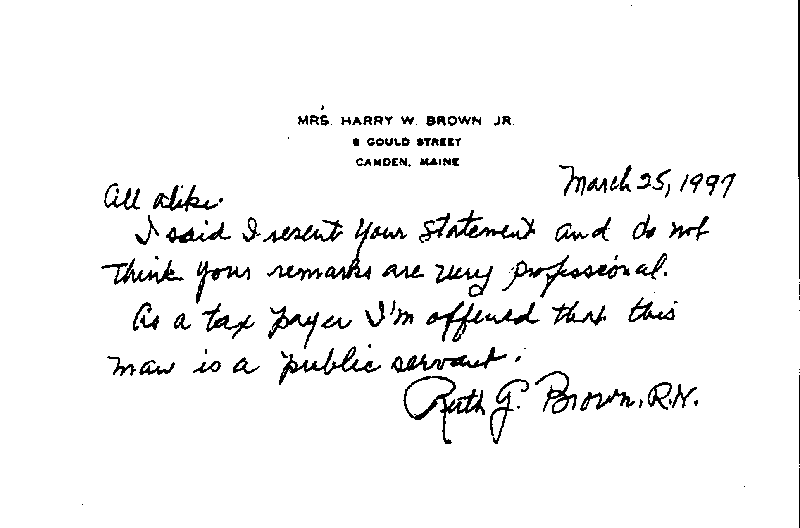 MRS. HARRY W. BROWN JR.
8 GOULD STREET
CAMDEN, MAINE
March 25, 1997
All alike.
I said I resent your statement and do not
think your remarks are very professional.
As a tax payer I'm offened that this
man is a public servant.
Ruth G. Brown, R.N.